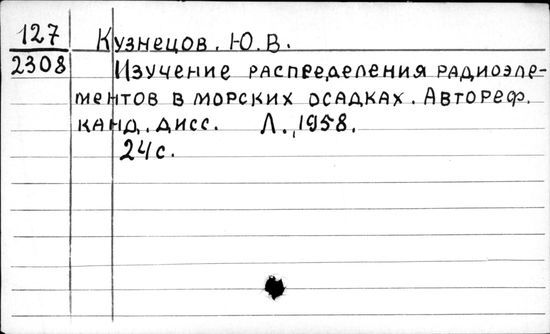 127 Кузнецов. Ю. В.
2308 Изучение распределения радиоэле-
ментов в морских осадках. Автореф.
канд. дисс. Л., 1958.
24 с.